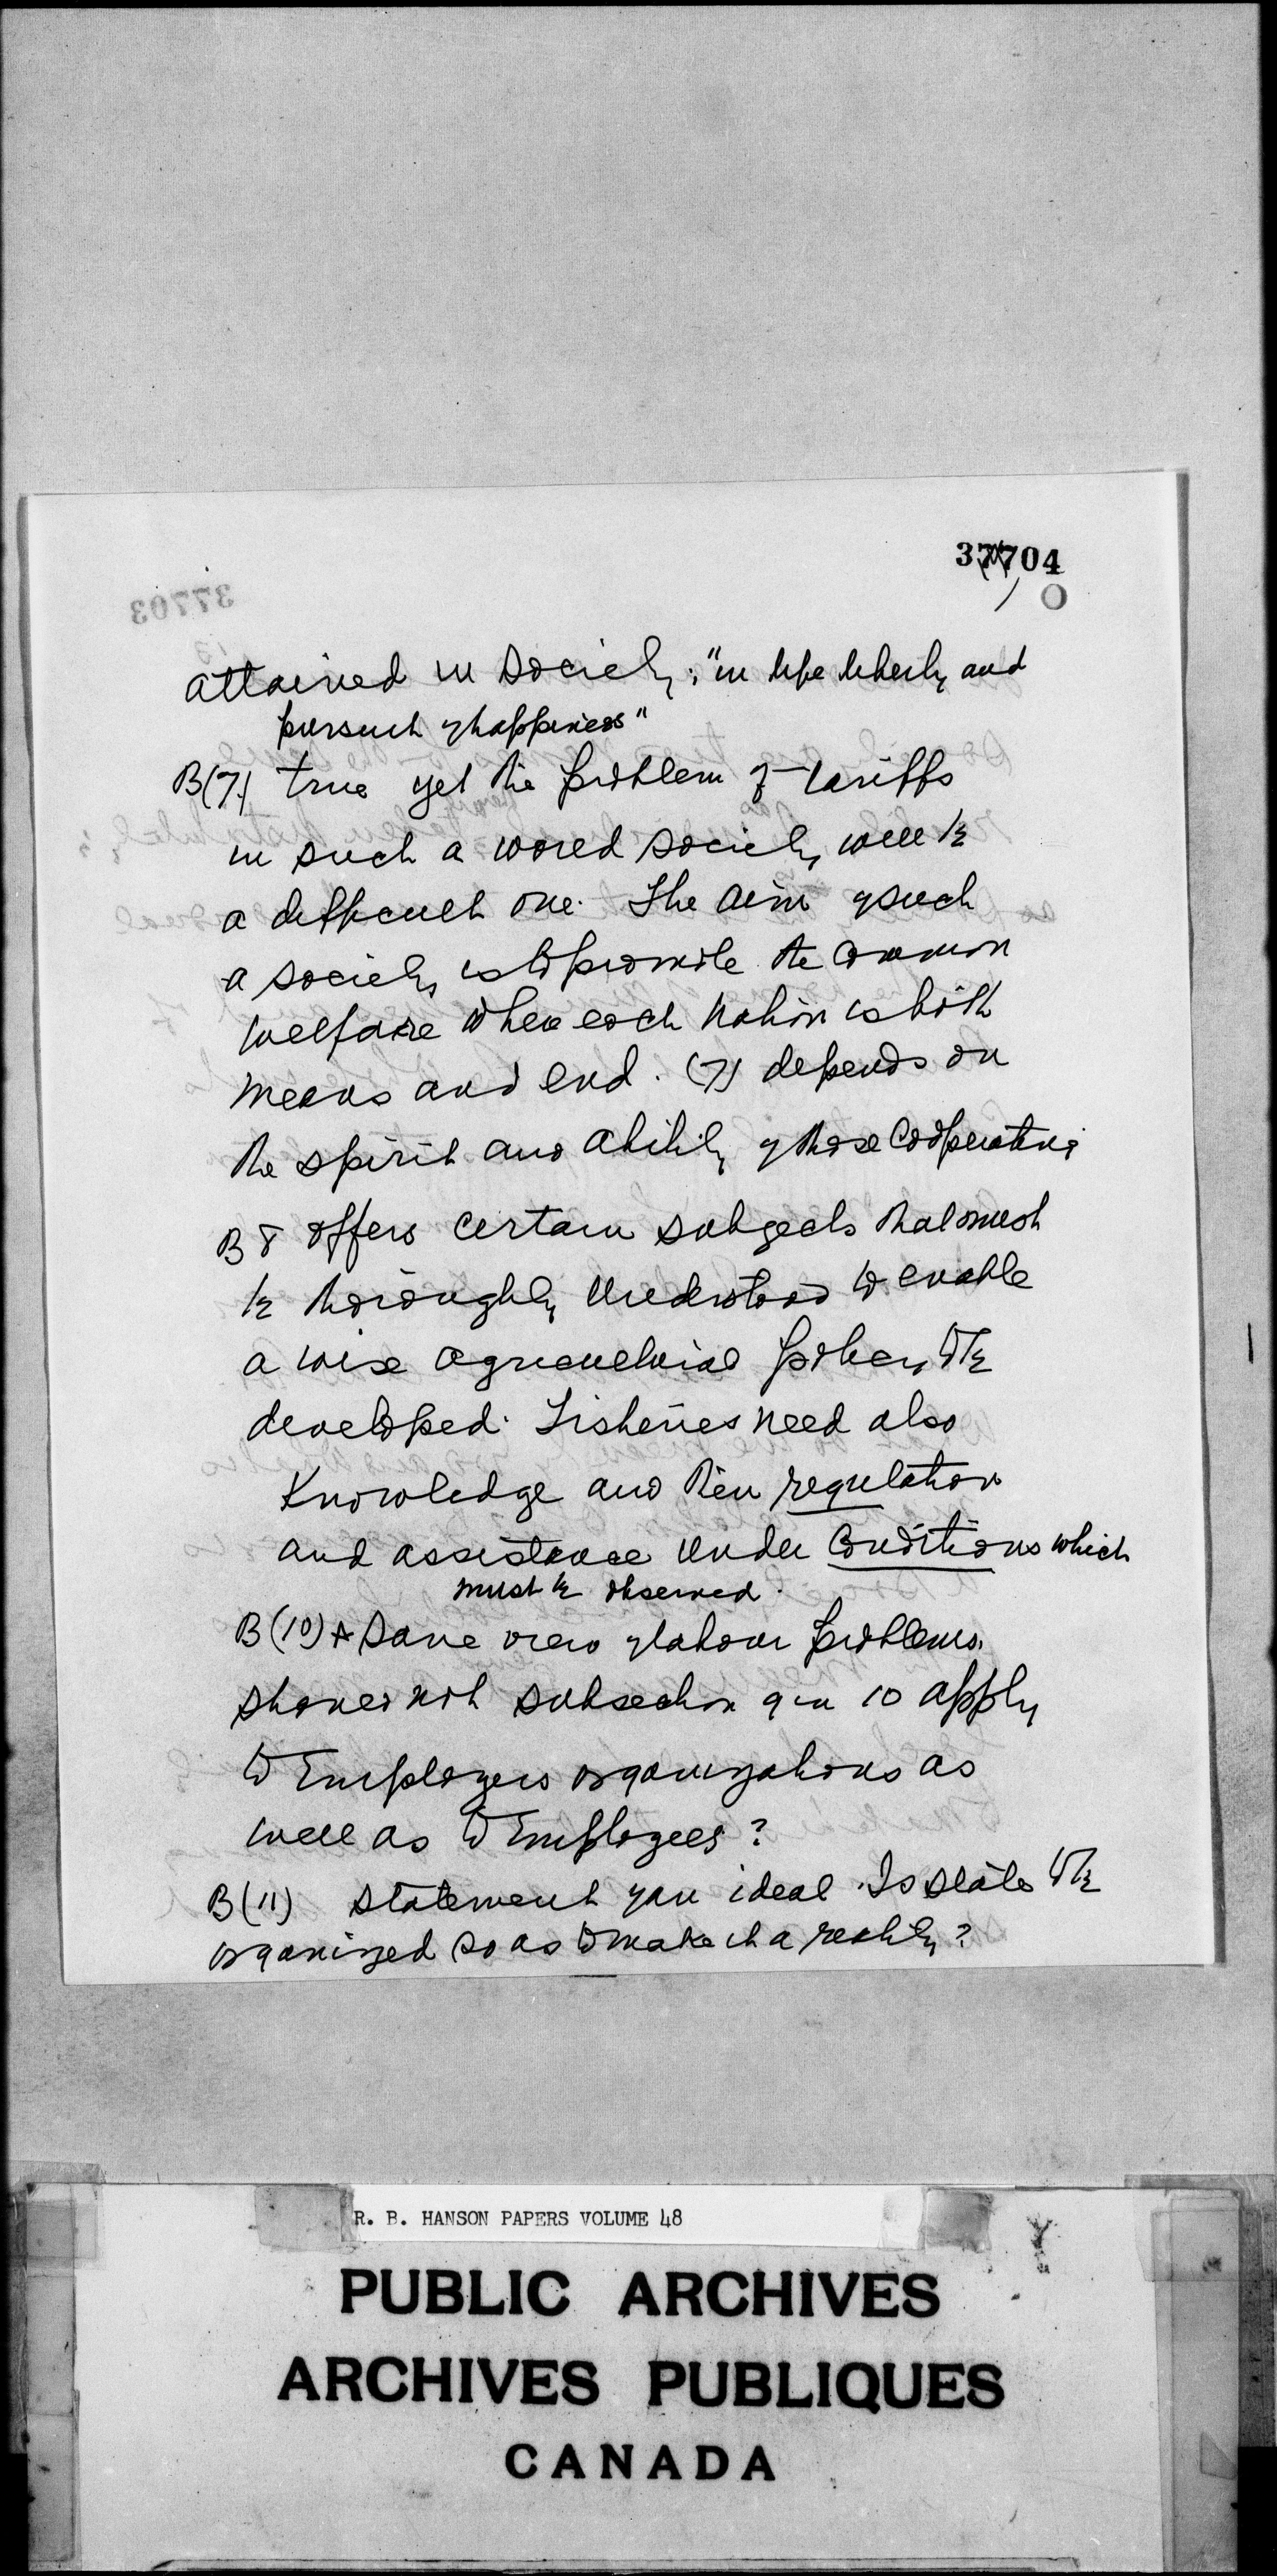 37704
37703
attained in society: "in life liberty and
pursuit of happiness"
B(7) true yet the problem of tariffs
in such a world society will be
a difficult one. The aim of such
a society is to promote the common
welfare where each nation is both
means and end. (7) depends on
the spirit and ability of those cooperating
B 8 offers certain subjects that must
be thoroughly understood to enable
a wise agricultural policy to be
developed. Fisheries need also
knowledge and their regulation
and assistance under conditions which
must be observed.
B(10) A sane view of labour problems.
should not subsection 9 in 10 apply
to Employers organizations as
well as to Employees?
B(11) statement of an ideal. Is state to be
organized so as to make it a reality?
R. B. HANSON PAPERS VOLUME 48
PUBLIC ARCHIVES
ARCHIVES PUBLIQUES
CANADA